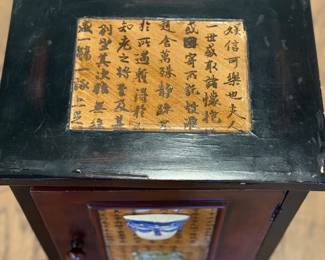 娱信可樂也夫人
一世或取諸懷抱
或因寄所託放浪
趣舍萬殊靜躁
於所遇暫得於
知老之將至及其
列坐其次雖無
盛一觴一詠足